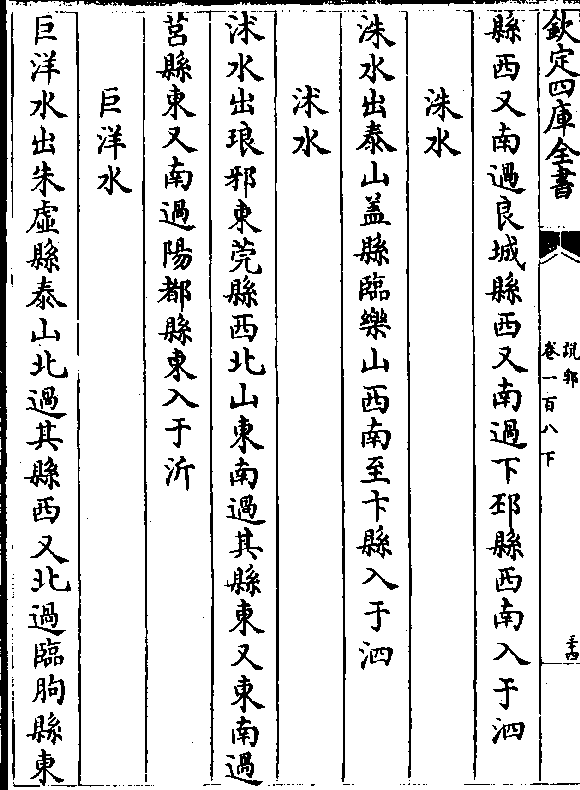 欽定四庫全書
說郛
卷一百八下
三十四
縣西又南過良城縣西又南過下邳縣西南入于泗
洙水
洙水出泰山盖縣臨樂山西南至卞縣入于泗
沭水
沭水出琅邪東莞縣西北山東南過其縣東又東南過
莒縣東又南過陽都縣東入于沂
巨洋水
巨洋水出朱虛縣泰山北過其縣西又北過臨朐縣東